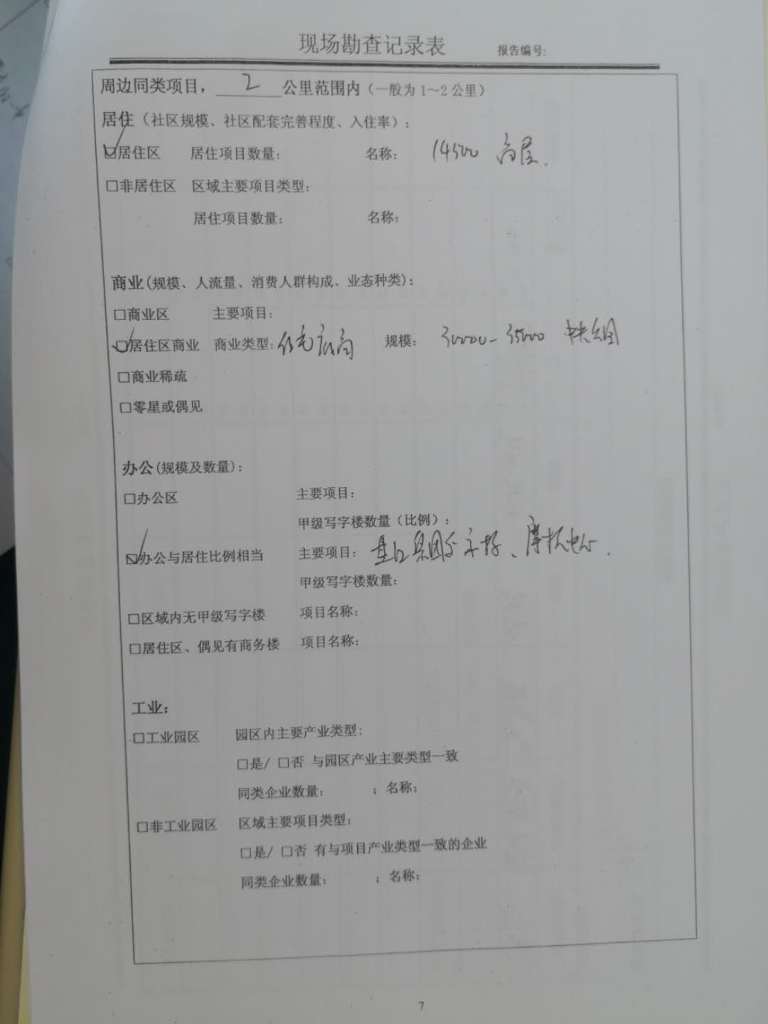 现场勘查记录表 报告编号:
周边同类项目，2公里范围内（一般为1～2公里）
居住（社区规模、社区配套完善程度、入住率）:
☑居住区 居住项目数量: 名称: 14500 高层.
□非居住区 区域主要项目类型:
居住项目数量: 名称:
商业(规模、人流量、消费人群构成、业态种类):
□商业区 主要项目:
☑居住区商业 商业类型:住宅底商 规模: 30000-35000
□商业稀疏
□零星或偶见
办公(规模及数量):
□办公区 主要项目:
甲级写字楼数量（比例）:
☑办公与居住比例相当 主要项目:
甲级写字楼数量:
□区域内无甲级写字楼 项目名称:
□居住区、偶见有商务楼 项目名称:
工业:
□工业园区 园区内主要产业类型:
□是/ □否 与园区产业主要类型一致
同类企业数量: ; 名称:
□非工业园区 区域主要项目类型:
□是/ □否 有与项目产业类型一致的企业
同类企业数量: ; 名称:
7